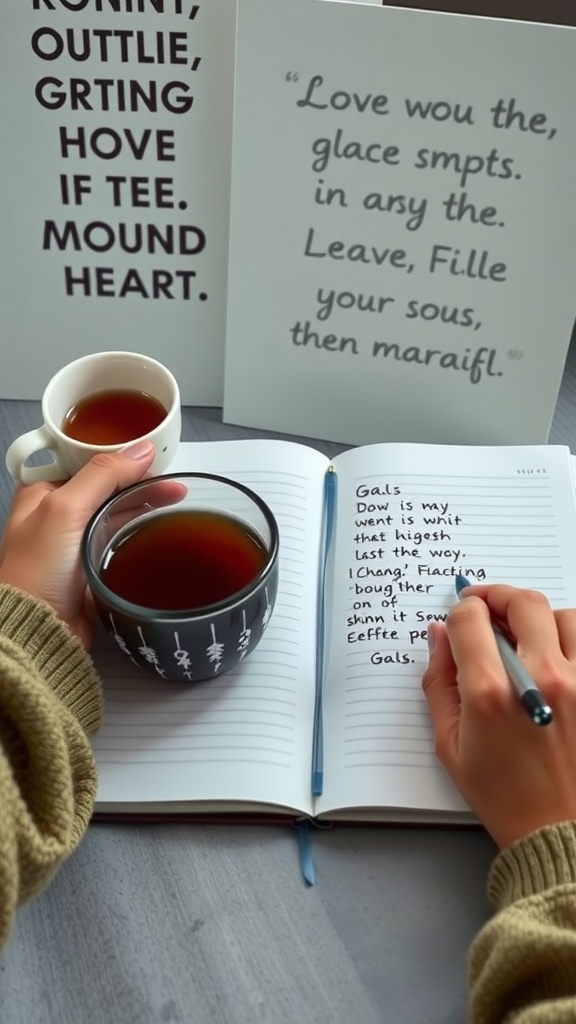 OUTTLIE,
GRTING
HOVE
IF TEE.
MOUND
HEART.
“Love wou the,
glace smpts.
in arsy the.
Leave, Fille
your sous,
then maraifl.”
Gals
Dow is may
went is whit
that higesh
last the way.
I Chang! Flacting
boug ther
on of
skinn it Sew
Eeffte pe
Gals.